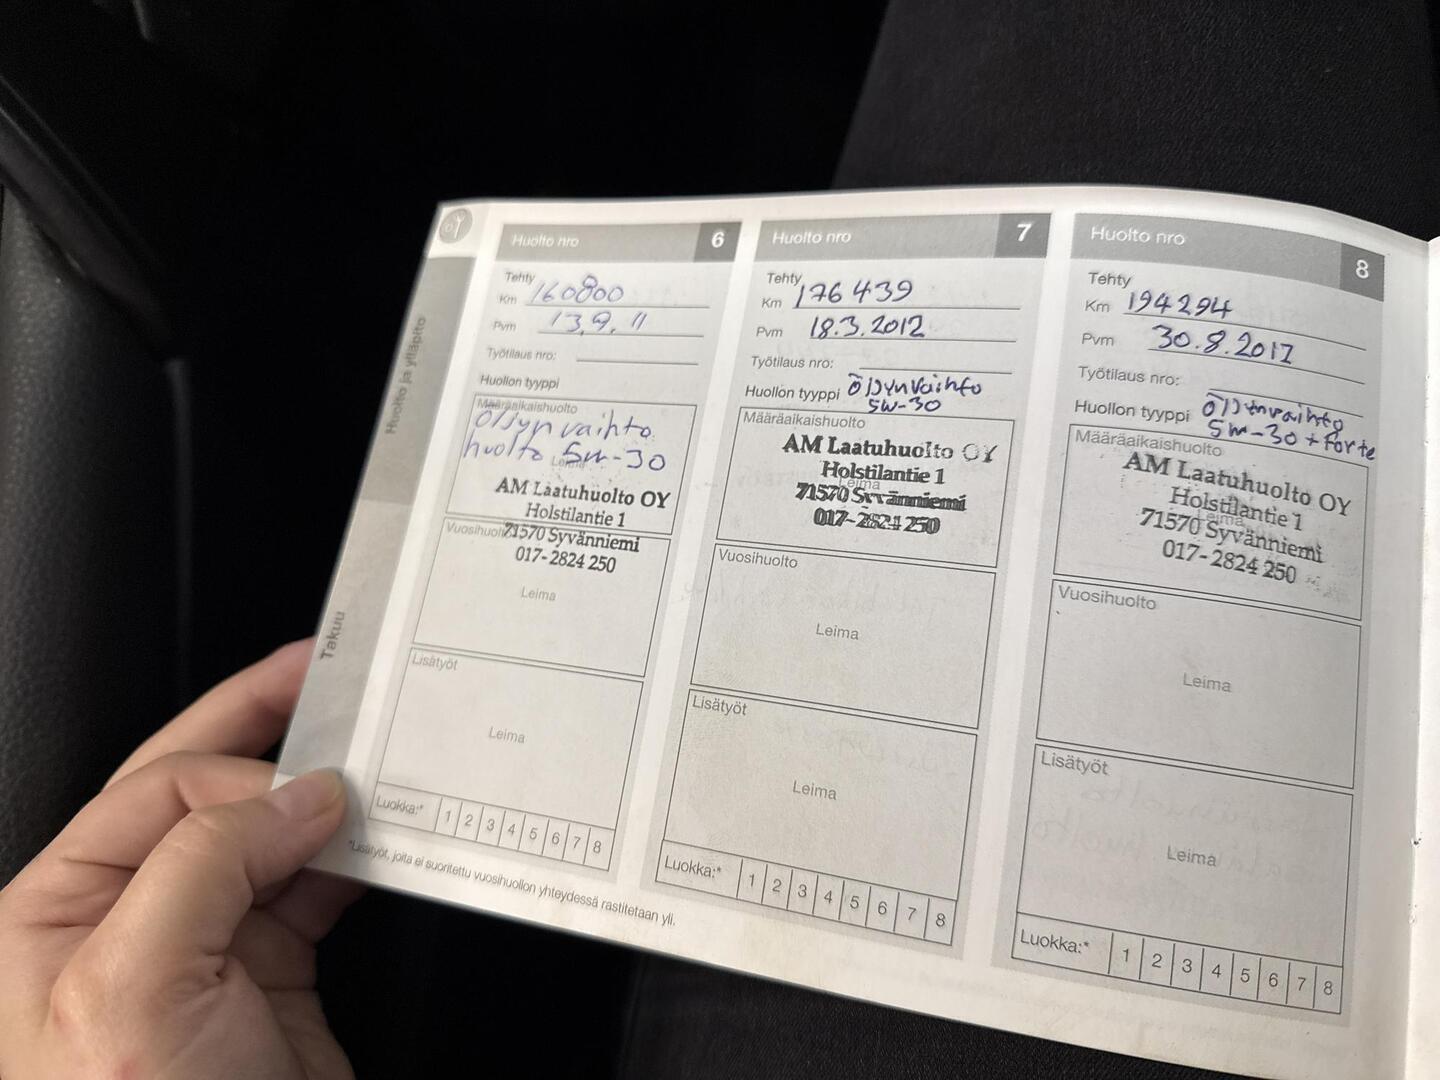 Huolto ja ylläpito
Takuu
Huolto nro 6
Tehty
Km 160800
Pvm 13.9.11
Työtilaus nro:
Huollon tyyppi
Määräaikaishuolto
Öljyn vaihto
huolto 5w-30
Leima
AM Laatuhuolto OY
Holstilantie 1
Vuosihuolto
71570 Syvänniemi
017-2824 250
Leima
Lisätyöt
Leima
Luokka:* 1 2 3 4 5 6 7 8
Huolto nro 7
Tehty
Km 176439
Pvm 18.3.2012
Työtilaus nro:
Huollon tyyppi öljynvaihto
5w-30
Määräaikaishuolto
AM Laatuhuolto OY
Holstilantie 1
Leima
71570 Syvänniemi
017-2824 250
Vuosihuolto
Leima
Lisätyöt
Leima
Luokka:* 1 2 3 4 5 6 7 8
Huolto nro 8
Tehty
Km 194294
Pvm 30.8.2012
Työtilaus nro:
Huollon tyyppi öljynvaihto
5w-30 + forte
Määräaikaishuolto
AM Laatuhuolto OY
Holstilantie 1
Leima
71570 Syvänniemi
017-2824 250
Vuosihuolto
Leima
Lisätyöt
Leima
Luokka:* 1 2 3 4 5 6 7 8
*Lisätyöt, joita ei suoritettu vuosihuollon yhteydessä rastitetaan yli.